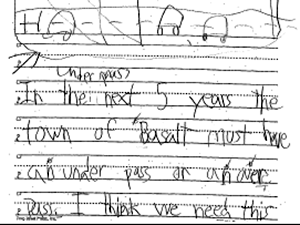 under pass
In the next 5 years the
town of Basalt must have
an under pass or an over
pass. I think we need this